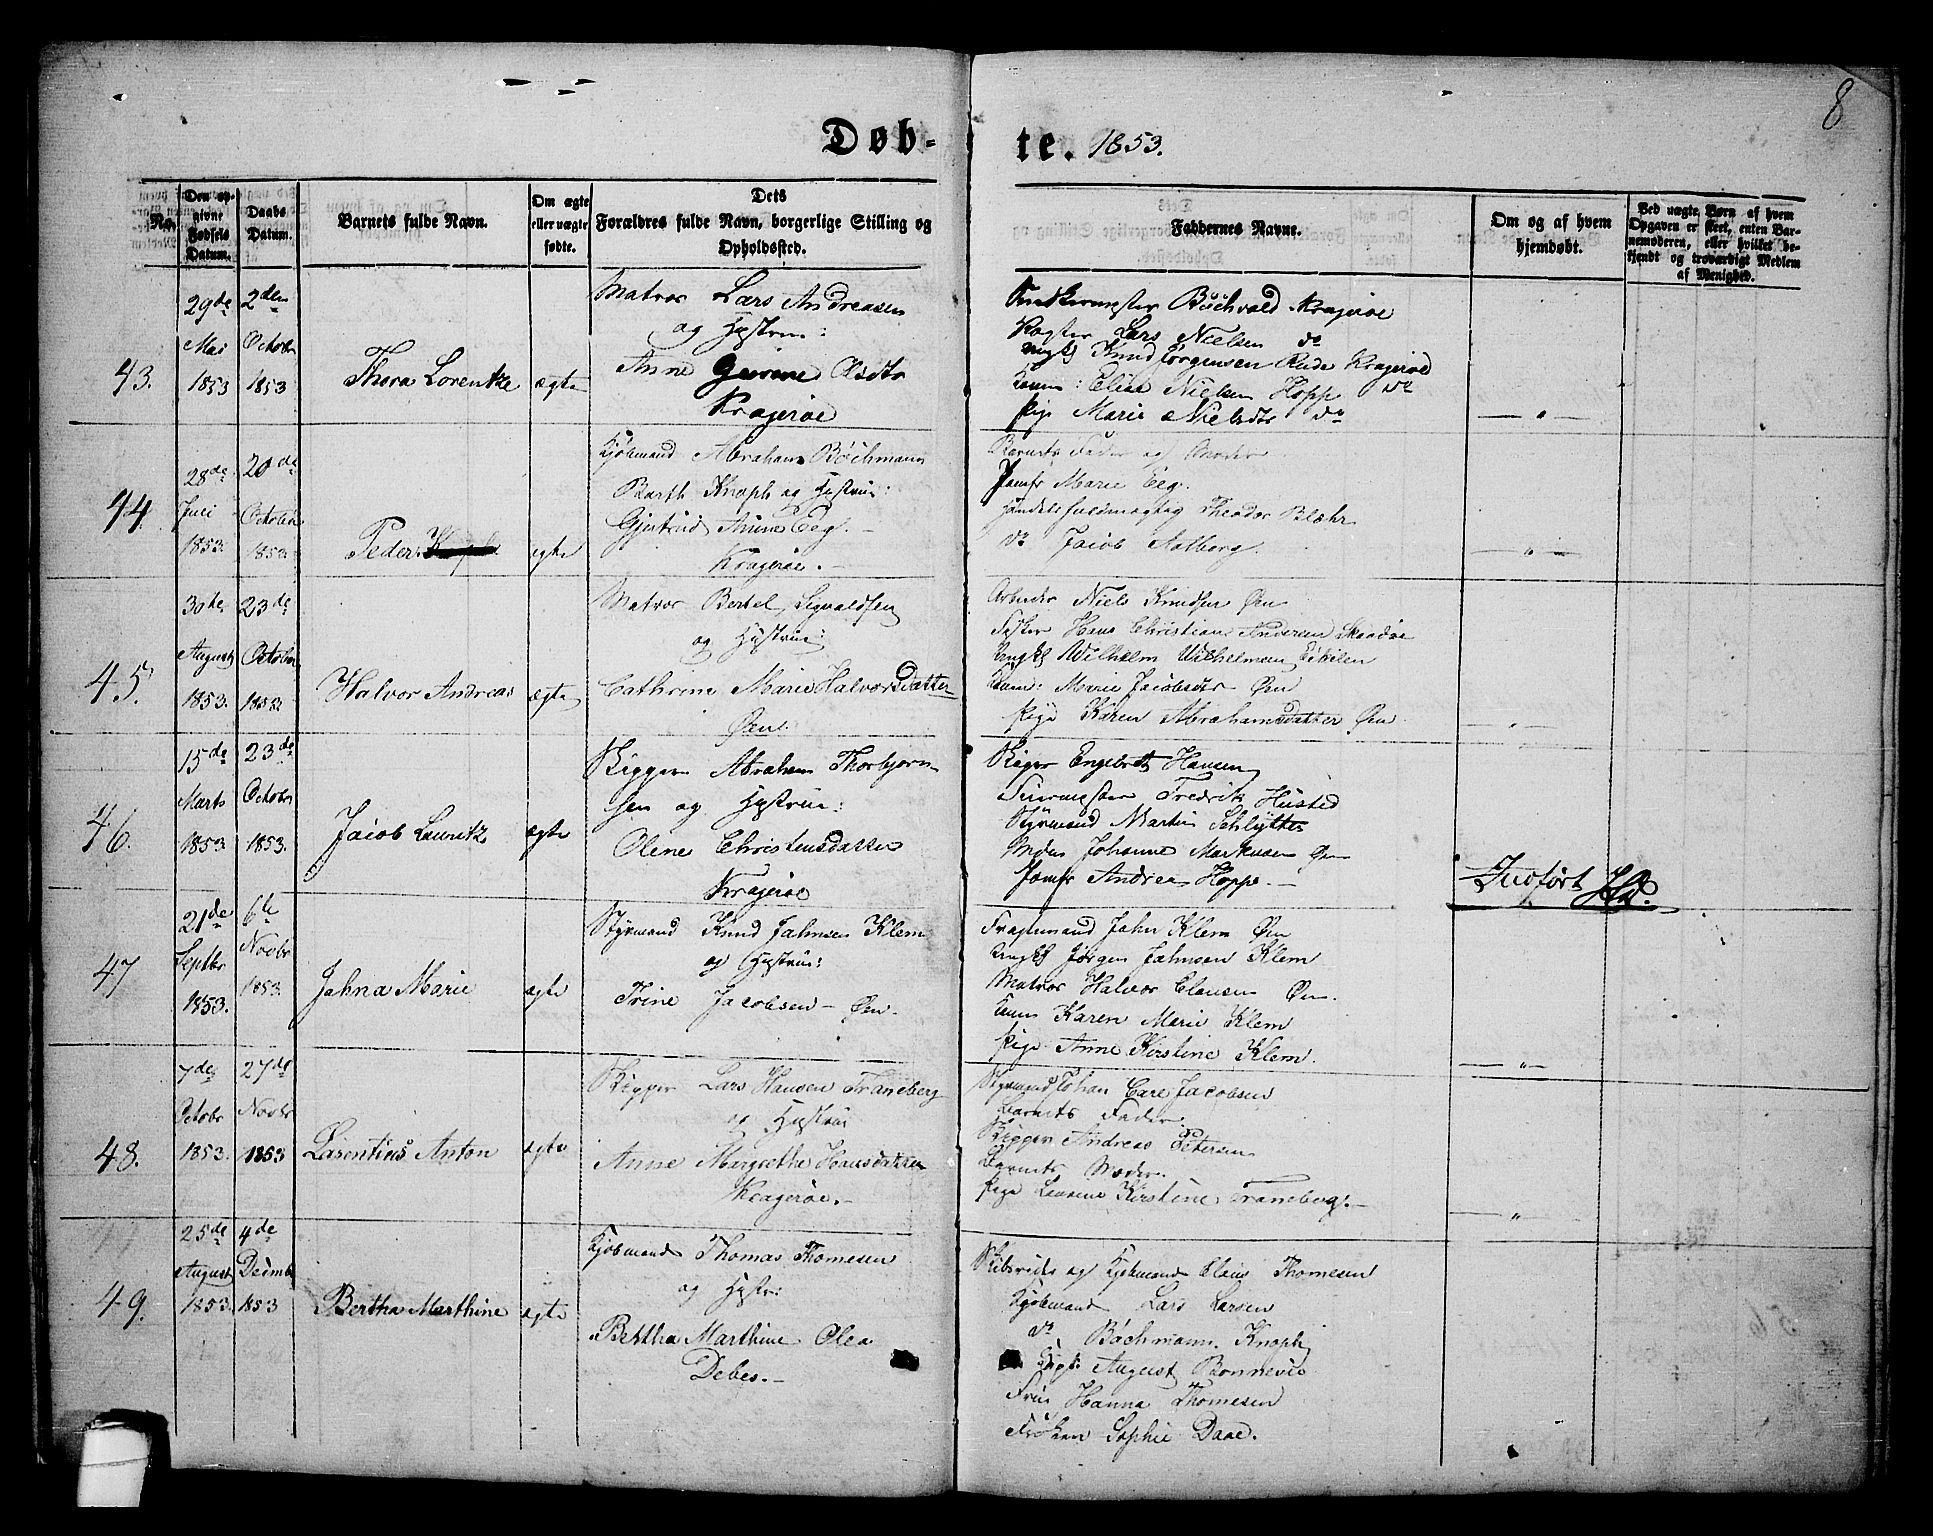 8
Døb-te. 1853.
No.
Den opgivne Fødsels Datum.
Daabs Datum.
Barnets fulde Navn.
Om ægte eller uægte fødte.
Dets Forældres fulde Navn, borgerlige Stilling og Opholdssted.
Faddernes Navne.
Om og af hvem hjemdøbt.
Ved uægte Børn af hvem Opgaven er skeet, enten Barnemoderen, eller hvilket bekjendt og troværdigt Medlem af Menighed.
43.
29de
Mai
1853
2den
Octobr
1853
Thora Lorentze
ægte
Matros Lars Andreasen
og Hustrue:
Anne Gurine Olsdtr
Kragerøe
Snedkermester Büchvald Kragerøe
Lars Nielsen do
Ungk Knud Jørgensen Rude Kragerøe
Kone: Elise Nielsen Hopp do
Pige Marie Nielsdtr do
— " —
44.
28de
Juli
1853.
20de
October
1853.
Peder
ægte
Kjøbmand Abraham Bøchmann
Barth Knoph og Hustrue:
Gjertrud Anne Eeg. —
Kragerøe. —
Barnets Fader og Moder
Jomfr Marie Eeg.
Handelsfuldmægtig Theodor Blæhr
do Jacob Aalborg.
— " —
45.
30te
August
1853.
23de
October
1853.
Halvor Andreas
ægte
Matros Bertel Sigvaldsen
og Hustrue:
Cathrine Marie Halvorsdatter
Øen.
Arbeider Niels Knudsen Øen
Fisker Hans Christian Andersen Skaadøe
Ungk Wilhelm Wilhelmsen Eikelen
Kone: Marie Jacobsdtr Øen
Pige Karen Abrahamsdatter Øen.
"
46.
15de
Marts
1853
23de
Octobr
1853.
Jacob Lauritz
ægte
Rigger Abraham Thorbjørnsen
og Hustrue:
Olene Christensdatter
Kragerøe
Rigger Engebret Hansen
Fredrik Husted
Styrmand Martin Schlytter
Mdm Johanne Markusen Øen
Jomfr Andrea Hopp. —
Indført
47
21de
Septbr
1853.
6te
Novbr
1853.
Jahna Marie
ægte
Styrmand Knud Jahnsen Klem
og Hustrue:
Trine Jacobsen — Øen.
Fragtemand Jahn Klem Øen
Ungk Jørgen Jahnsen Klem
Matros Halvor Clausen Øen.
Kone Karen Marie Klem
Pige Anne Kirstine Klem.
— " —
48.
7de
Octobr
1853.
27de
Novbr
1853
Laurentius Anton
ægte
Rigger Lars Hansen Traneberg
og Hustrue
Anne Margrethe Hansdatter
Kragerøe. —
Styrmand Johan Carl Jacobsen
Barnets Fader.
Rigger Andreas Petersen
Barnets Moder.
Pige Kirstine Traneberg. —
— " —
49.
25de
August
1853.
4de
Decembr
1853
Bertha Marthine
ægte
Kjøbmand Thomas Thomesen
og Hustr:
Bertha Marthine Olea
Debes. —
Skibsrheder og Kjøbmand Claus Thomesen
Kjøbmand Lars Larsen
do Bøchmann Knoph
August Bonnevie
Frue Hanna Thomesen
Frøken Sophie Daae.